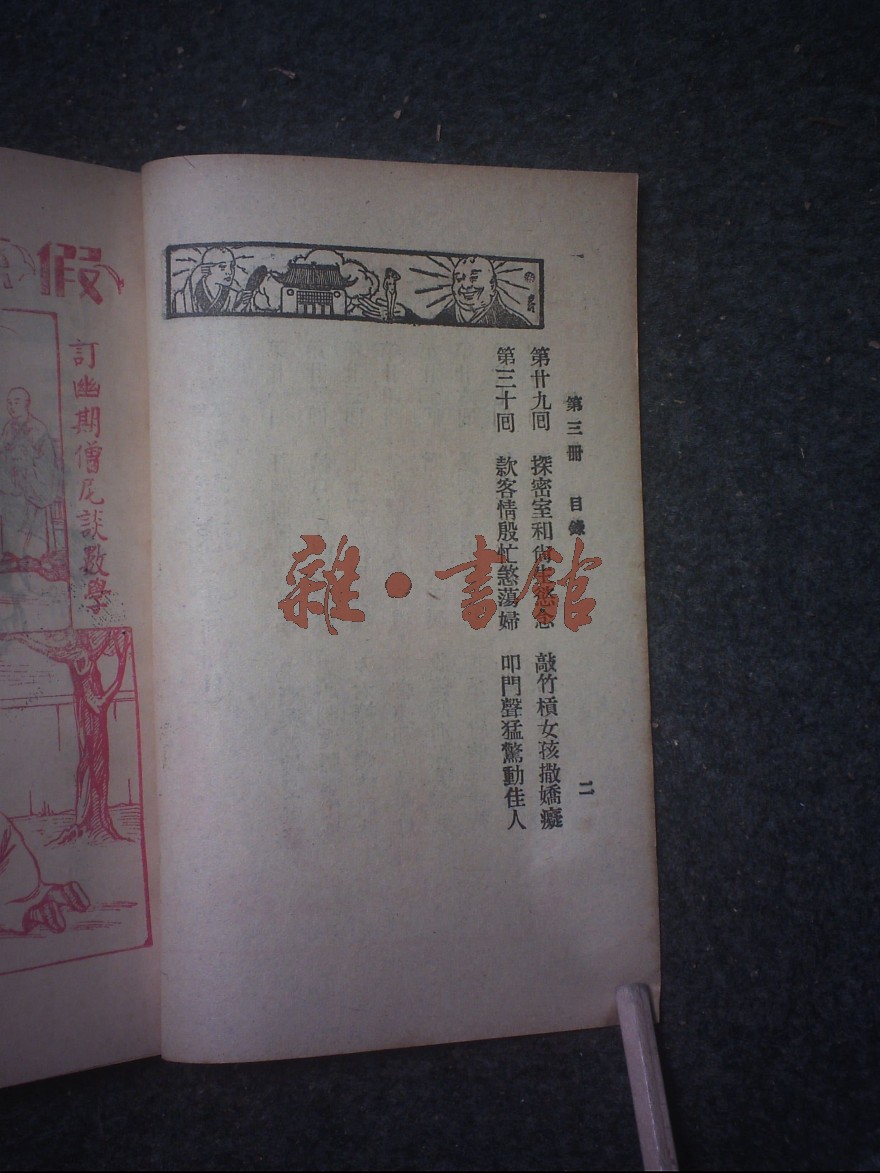 第三冊 目錄 二
第廿九回 探密室和尚生慾念 敲竹槓女孩撒嬌癡
第三十回 款客情殷忙煞蕩婦 叩門聲猛驚動佳人
假
訂幽期僧尼談數學
雜·書館